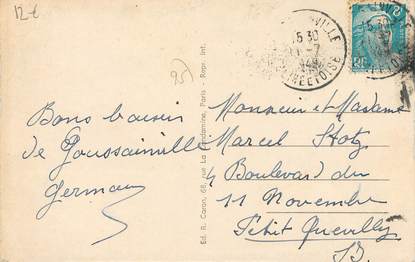 12-€
95)
Bons baiser
de Goussainville
Germain
Ed. R. Caron, 68, rue La Condamine, Paris - Repr. Int.
15 30
SEINE ET OISE
2F
Monsieur et Madame
Marcel Stotz
4 Boulevard du
11 Novembre
Petit Quevilly